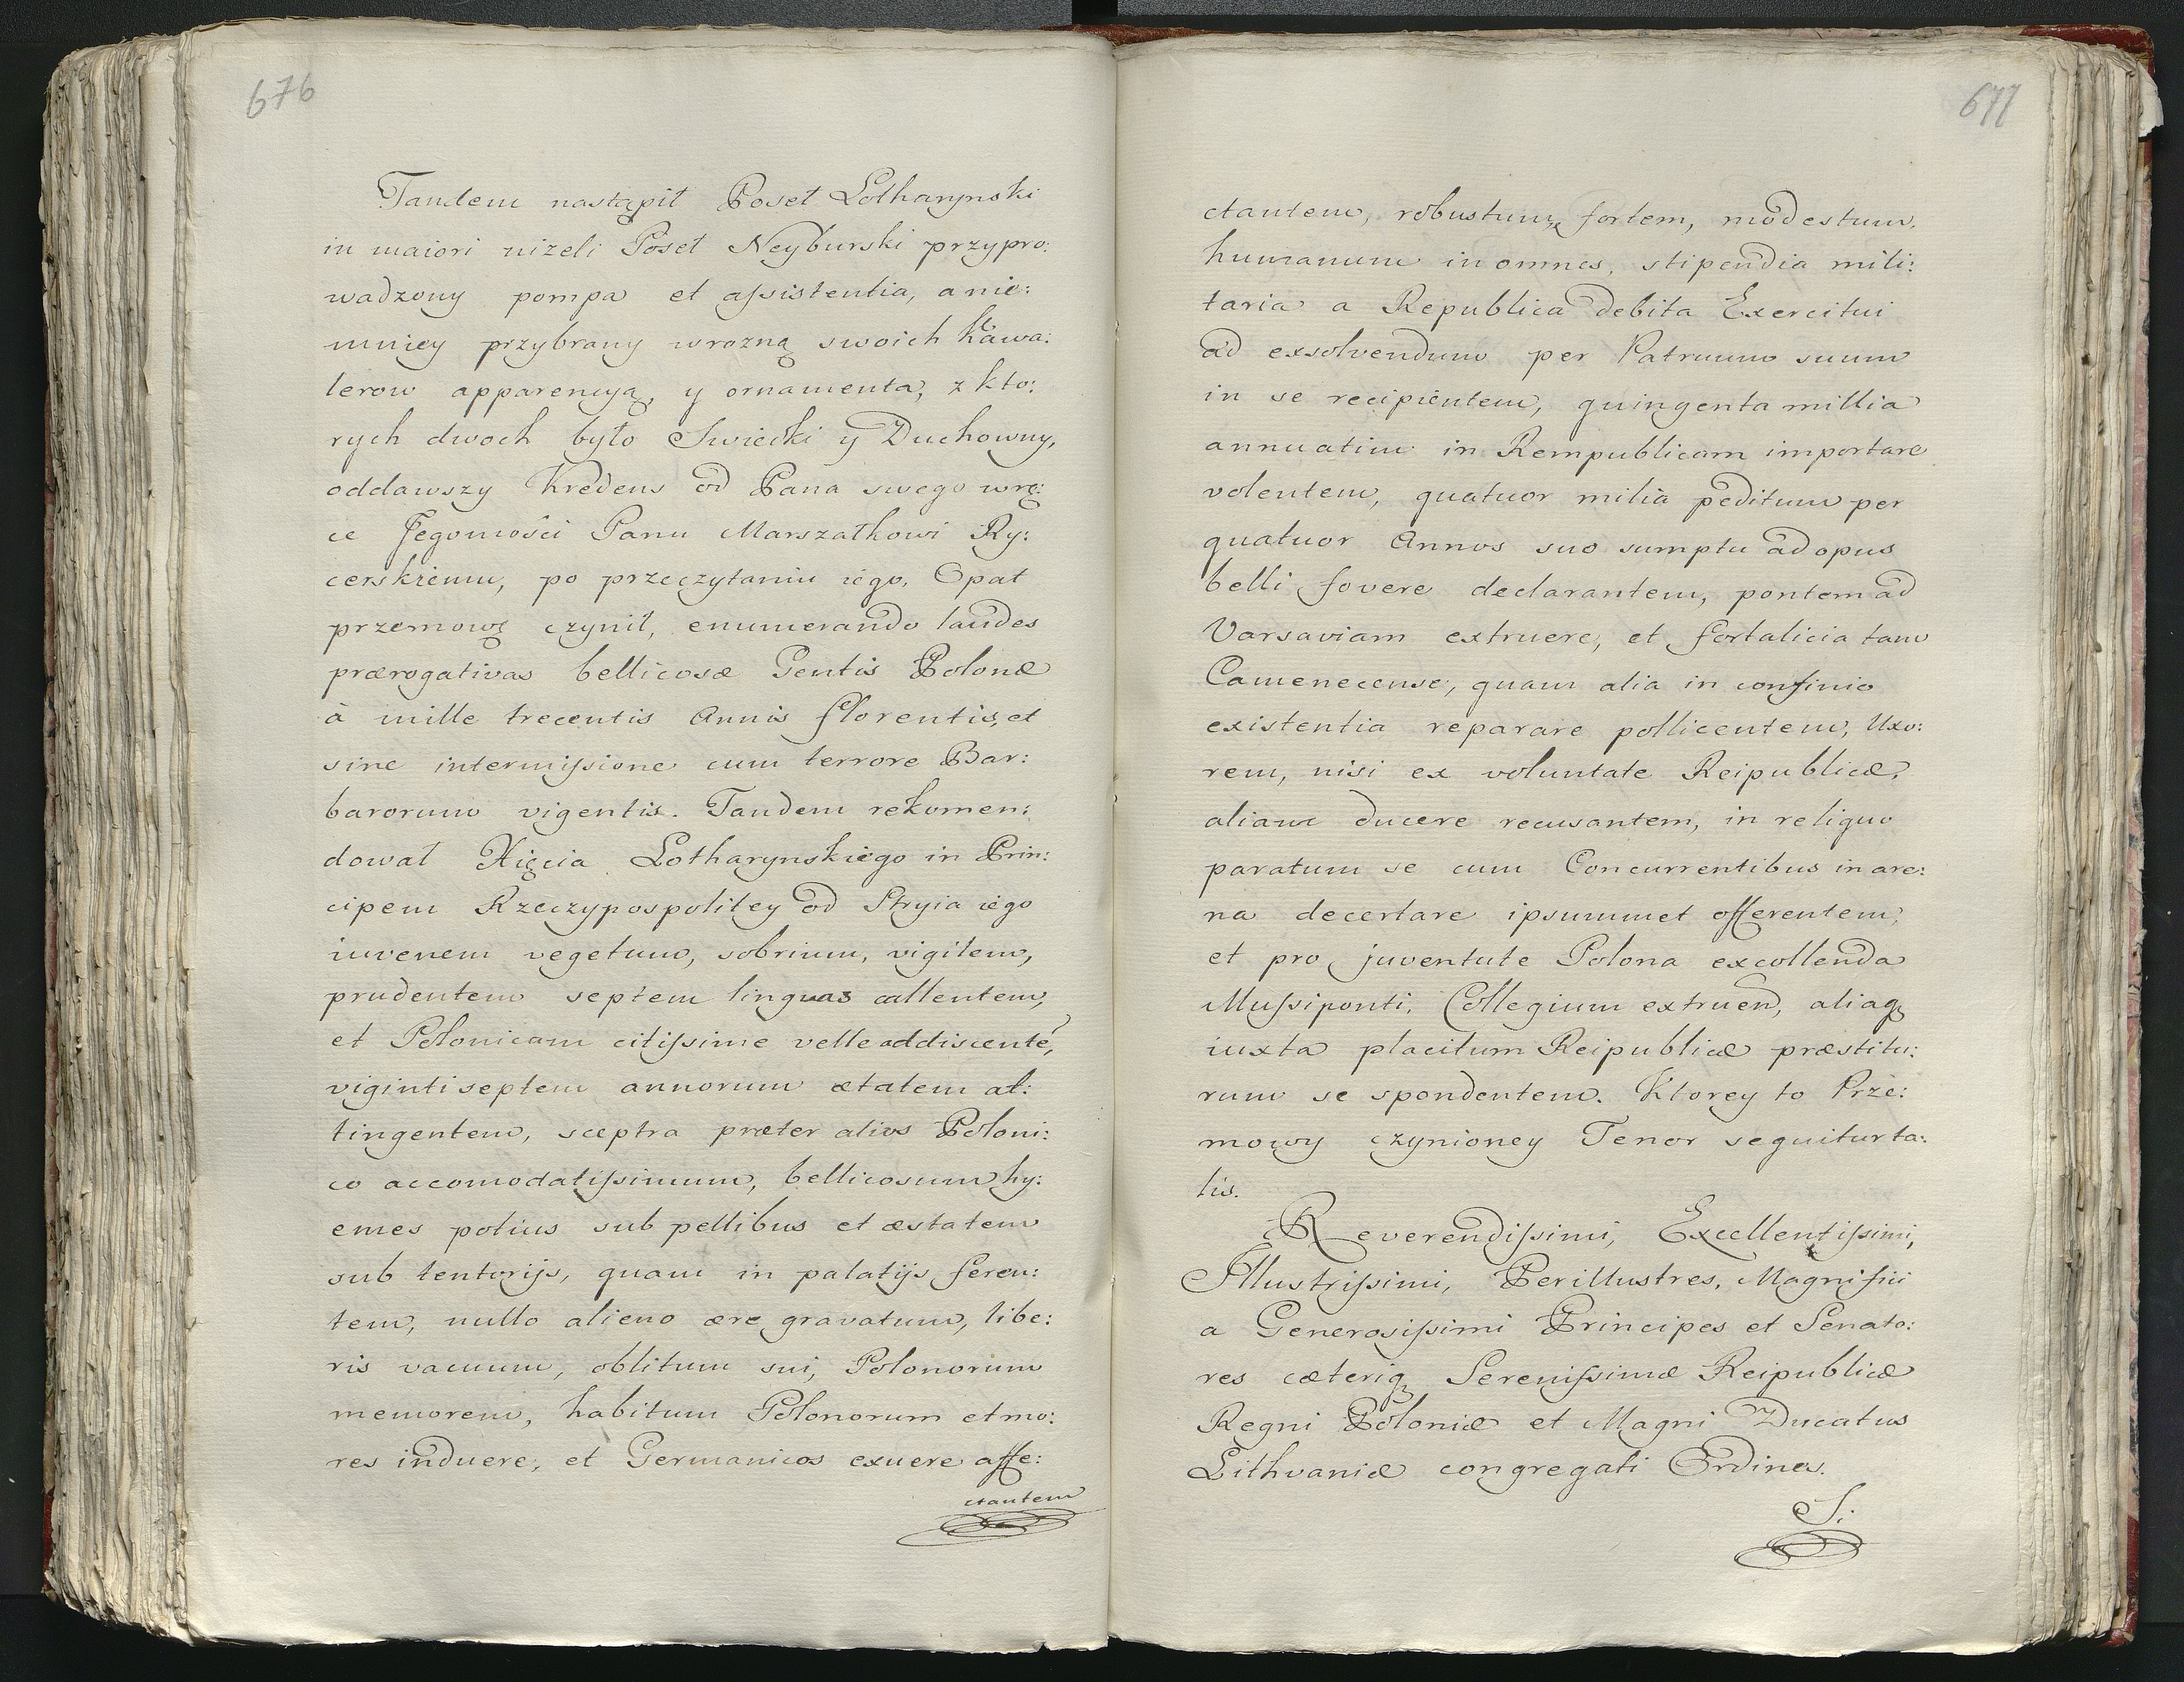 676
Tandem nastąpił Poseł Lotharynski
in maiori niżeli Poseł Neyburski przypro:
wadzony pompa et assistentia, a nie:
mniey przybrany w rozną swoich Kawa:
lerow apparencyą, y ornamenta, z kto:
rych dwoch było Swiecki y Duchowny,
oddawszy Kredens od Pana swego w rę:
ce Jegomości Panu Marszałkowi Ry:
cerskiemu, po przeczytaniu iego, Opat
przemowę czynił, enumerando laudes
prærogativas bellicosæ Gentis Polonæ
à mille trecentis Annis florentis, et
sine intermissione cum terrore Bar:
barorum vigentis. Tandem rekomen:
dował Xięcia Lotharynskiego in Prin:
cipem Rzeczypospolitey od Stryia iego
iuvenem vegetum, sobrium, vigilem,
prudentem septem linguas callentem,
et Polonicam citissime velle addiscente,
viginti septem annorum ætatem at:
tingentem, sceptra præter alios Poloni:
co accomodatissimum, bellicosum hy:
emes potius sub pellibus et æstatem
sub tentorijs, quam in palatijs feren:
tem, nullo alieno ære gravatum, libe:
ris vacuum, oblitum sui, Polonorum
memorem, habitum Polonorum et mo:
res induere, et Germanicos exuere affe:
ctantem
677
ctantem, robustum, fortem, modestum,
humanum in omnes, stipendia mili:
taria a Republica debita Exercitui
ad exsolvendum per Patruum suum
in se recipientem, quingenta millia
annuatim in Rempublicam importare
volentem, quatuor milia peditum per
quatuor Annos suo sumptu ad opus
belli fovere declarantem, pontem ad
Varsaviam extruere, et fortalicia tam
Camenecense, quam alia in confinio
existentia reparare pollicentem, Uxo:
rem, nisi ex voluntate Reipublicæ,
aliam ducere recusantem, in reliquo
paratum se cum Concurrentibus in are:
na decertare ipsummet offerentem,
et pro juventute Polona excollenda
Mussiponti, Collegium extruend, aliaq
iuxta placitum Reipublicæ præstitu:
rum se spondentem. Ktorey to Prze:
mowy czynioney Tenor sequitur ta:
lis.
Reverendissimi, Excellentissimi,
Illustrissimi, Perillustres, Magnifici
a Generosissimi Principes et Senato:
res cæteriq Serenissimæ Reipublicæ
Regni Poloniæ et Magni Ducatus
Lithvaniæ congregati Ordines.
S: